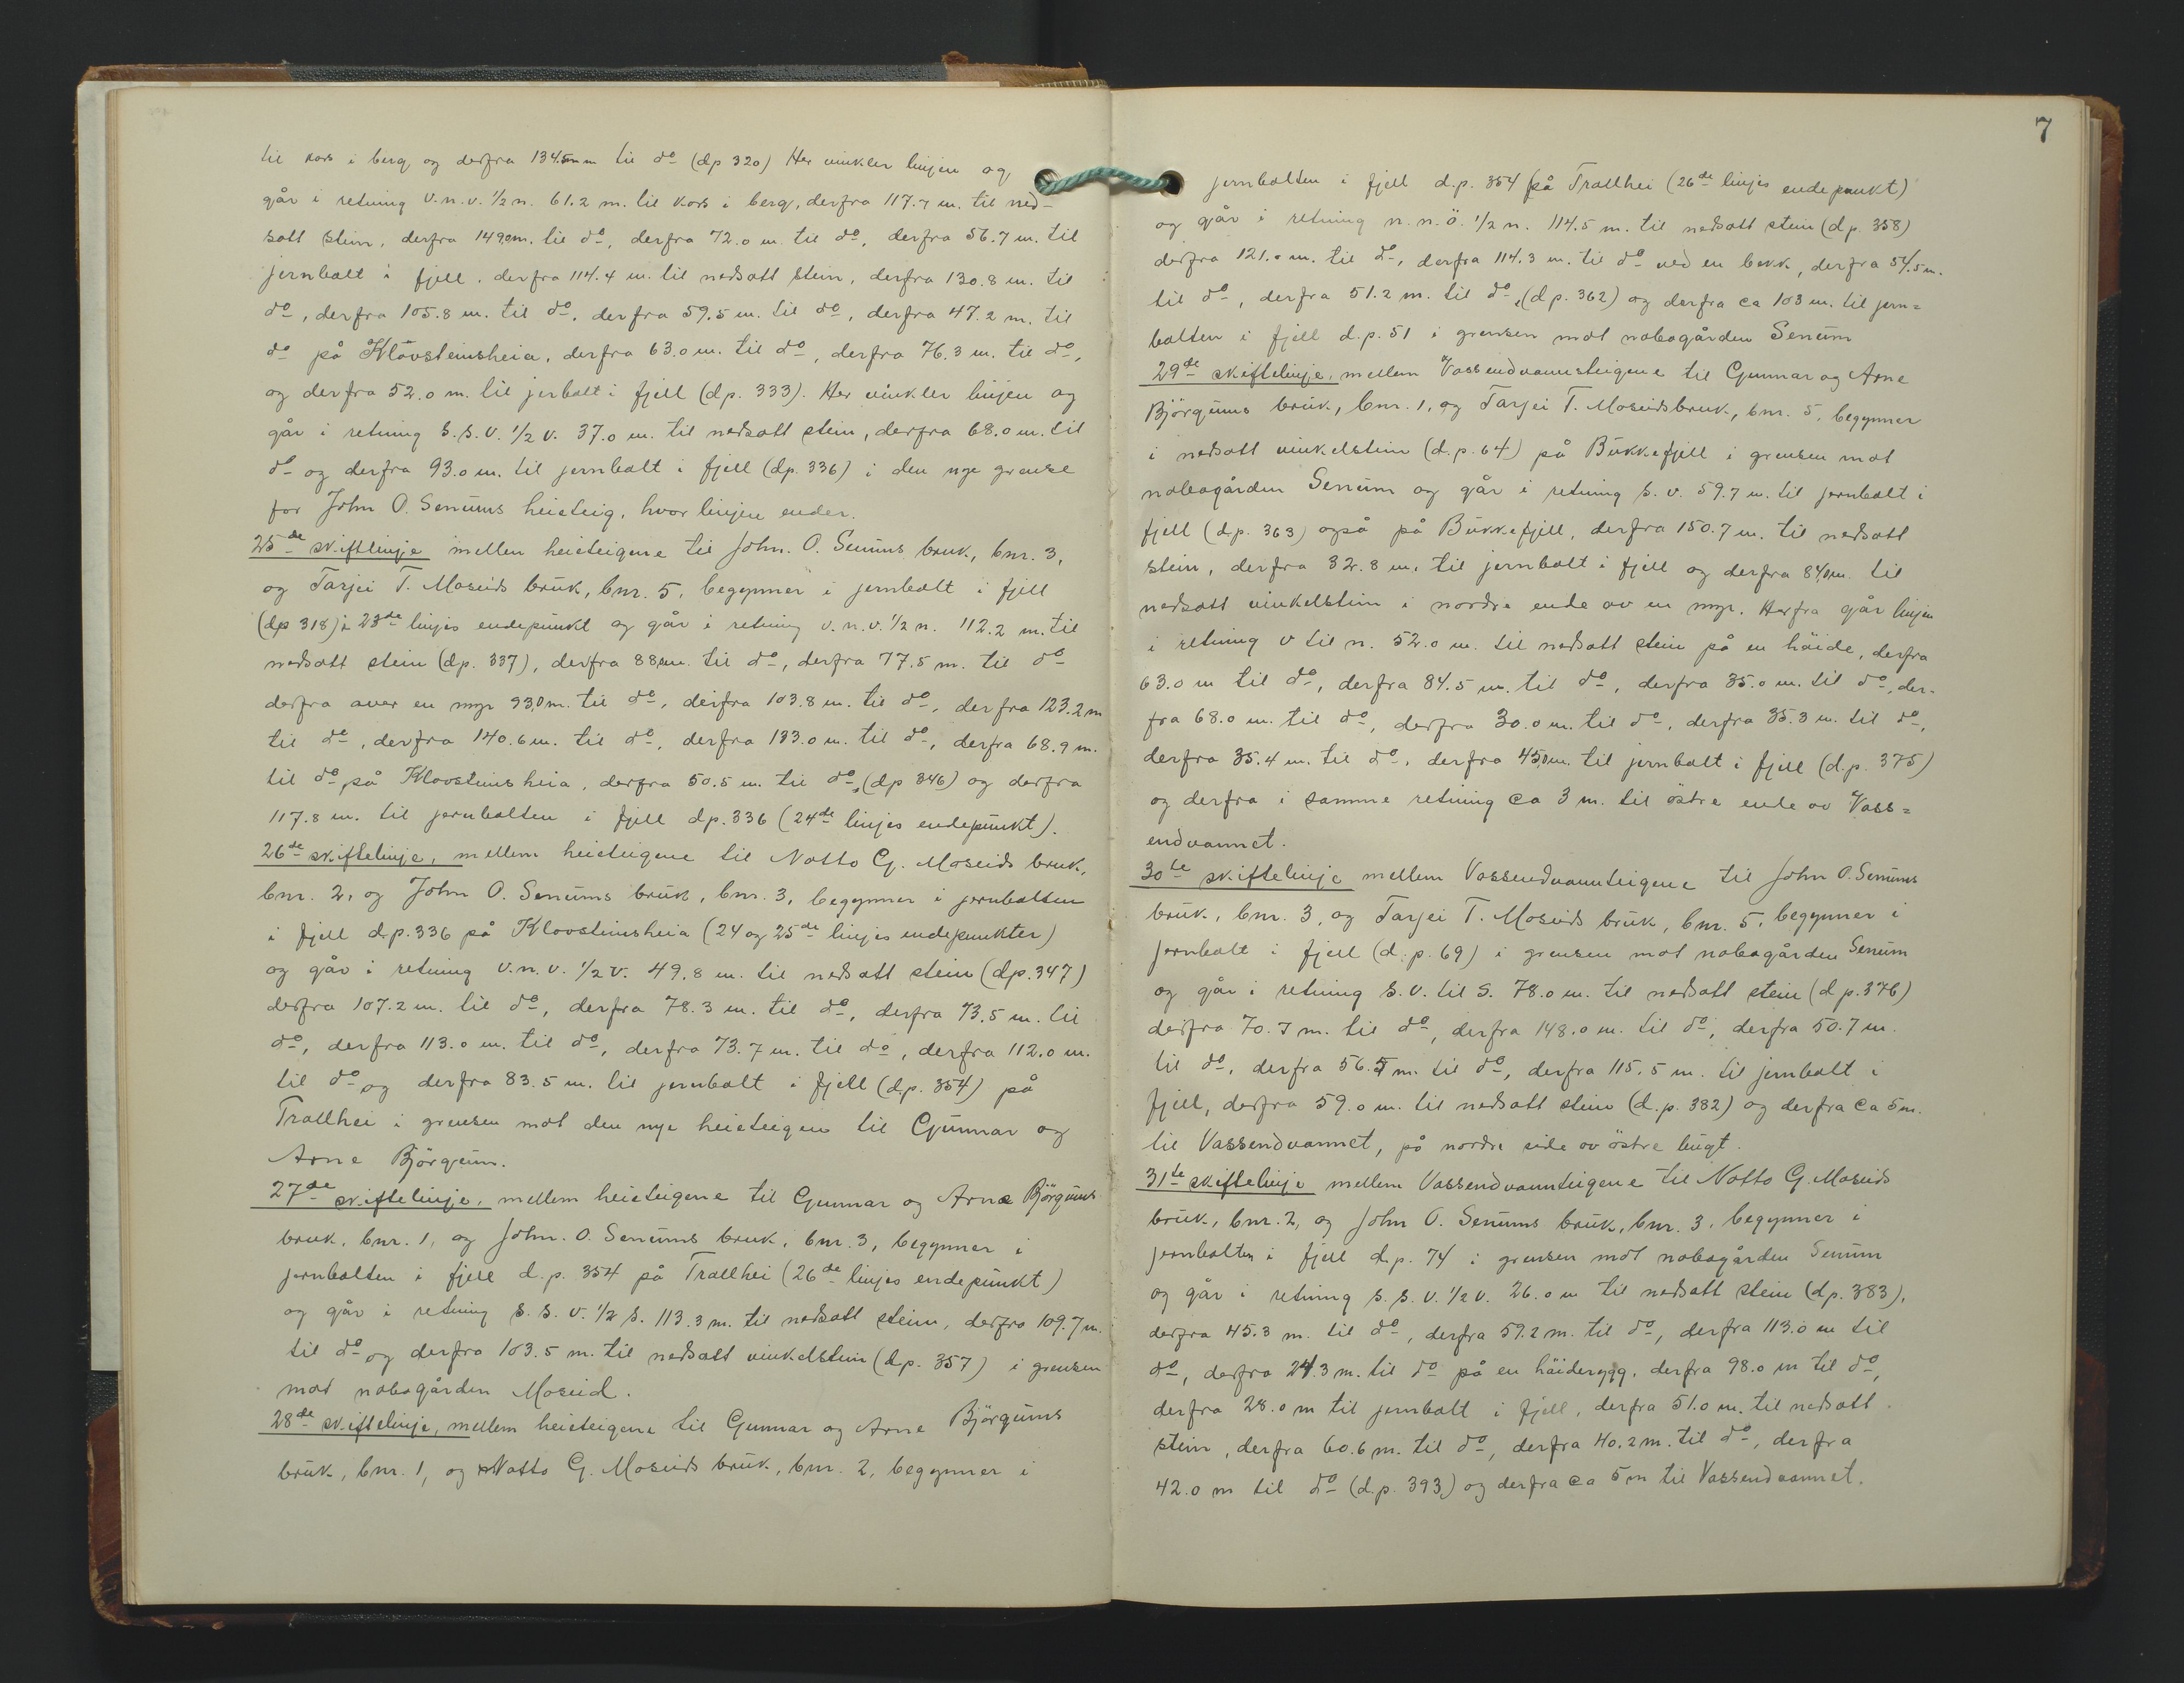 til kors i berg og derfra 134.5 m til do (dp 320) Her vinkler linjen og
går i retning v.n.v. 1/2 n. 61.2 m. til kors i berg, derfra 117.7 m. til ned-
satt stein, derfra 149.0 m. til do, derfra 72.0 m. til do, derfra 56.7 m. til
jernbolt i fjell, derfra 114.4 m. til nedsatt stein, derfra 130.8 m. til
do, derfra 105.8 m. til do, derfra 59.5 m. til do, derfra 47.2 m. til
do på Klövsteinsheia, derfra 63.0 m. til do, derfra 76.3 m. til do,
og derfra 52.0 m. til jerbolt i fjell (dp. 333). Her vinkler linjen og
går i retning s.s.v. 1/2 v. 37.0 m. til nedsatt stein, derfra 68.0 m. til
do og derfra 93.0 m. til jernbolt i fjell (dp. 336) i den nye grense
for John O. Senums heieteig, hvor linjen ender.
25de skiftlinje mellen heieteigene til John. O. Senums bruk, bnr. 3,
og Tarjei T. Moseids bruk, bnr. 5, begynner i jernbolt i fjell
(dp 318) i 23de linjes endepunkt og går i retning v.n.v. 1/2 n. 112.2 m. til
nedsatt stein (dp. 337), derfra 88.0 m. til do, derfra 77.5 m. til do
derfra over en myr 93.0 m. til do, derfra 103.8 m. til do, derfra 123.2 m
til do, derfra 140.6 m. til do, derfra 133.0 m. til do, derfra 68.9 m.
til do på Klovsteinsheia, derfra 50.5 m. til do, (dp 346) og derfra
117.8 m. til jernbolten i fjell dp. 336 (24de linjes endepunkt).
26de skiftelinje, mellem heieteigene til Notto G. Moseids bruk,
bnr. 2, og John O. Senums bruk, bnr. 3, begynner i jernbolten
i fjell d.p. 336 på Klovsteinsheia (24 og 25de linjes endepunkter)
og går i retning v.n.v. 1/2 v. 49.8 m. til nedsatt stein (dp. 347)
derfra 107.2 m. til do, derfra 78.3 m. til do, derfra 73.5 m. til
do, derfra 113.0 m. til do, derfra 73.7 m. til do, derfra 112.0 m.
til do og derfra 83.5 m. til jernbolt i fjell (d.p. 354) på
Trollhei i grensen mot den nye heieteigen til Gunnar og
Arne Björgum.
27de skiftelinje, mellem heieteigene til Gunnar og Arne Björgums
bruk, bnr. 1, og John. O. Senums bruk, bnr. 3, begynner i
jernbolten i fjell d.p. 354 på Trollhei (26de linjes endepunkt)
og går i retning s.s.v. 1/2 s. 113.3 m. til nedsatt stein, derfra 109.7 m.
til do og derfra 103.5 m. til nedsatt vinkelstein (d.p. 357) i grensen
mot nabogården Moseid.
28de skiftelinje, mellem heieteigene til Gunnar og Arne Björgums
bruk, bnr. 1, og Notto G. Moseids bruk, bnr. 2, begynner i
7
jernbolten i fjell d.p. 354 på Trollhei (26de linjes endepunkt)
og går i retning n.n.ö. 1/2 n. 114.5 m. til nedsatt stein (d p. 358)
derfra 121.0 m. til do, derfra 114.3 m. til do ved en bekk, derfra 54.5 m.
til do, derfra 51.2 m. til do, (d p. 362) og derfra ca 103 m. til jern=
bolten i fjell d.p. 51 i grensen mot nabogården Senum
29de skiftelinje, mellem Vassendvannsteigene til Gunnar og Arne
Björgums bruk, bnr. 1, og Tarjei T. Moseids bruk, bnr. 5, begynner
i nedsatt vinkelstein (d.p. 64) på Bukkefjell i grensen mot
nabogården Senum og går i retning s.v. 59.7 m. til jernbolt i
fjell (d p. 363) også på Bukkefjell, derfra 150.7 m. til nedsatt
stein, derfra 32.8 m. til jernbolt i fjell og derfra 84.0 m. til
nedsatt vinkelstein i nordre ende av en myr. Herfra går linjen
i retning v til n. 52.0 m. til nedsatt stein på en höide, derfra
63.0 m til do, derfra 84.5 m. til do, derfra 35.0 m. til do, der-
fra 68.0 m. til do, derfra 30.0 m. til do, derfra 35.3 m. til do,
derfra 35.4 m. til do, derfra 45.0 m. til jernbolt i fjell (d.p. 375)
og derfra i samme retning ca 3 m. til östre ende av Vass=
endvannet.
30te skiftelinje mellem Vassendvannteigene til John O. Senums
bruk, bnr. 3, og Tarjei T. Moseids bruk, bnr. 5, begynner i
jernbolt i fjell (d.p. 69) i grensen mot nabogården Senum
og går i retning s.v. til s. 78.0 m. til nedsatt stein (d p. 376)
derfra 70.7 m. til do, derfra 148.0 m. til do, derfra 50.7 m.
til do, derfra 56.5 m. til do, derfra 115.5 m. til jernbolt i
fjell, derfra 59.0 m. til nedsatt stein (d.p. 382) og derfra ca 5 m.
til Vassendvannet, på nordre side av östre bugt.
31te skiftelinje mellem Vassendvannteigene til Notto G. Moseids
bruk, bnr. 2, og John O. Senums bruk, bnr. 3, begynner i
jernbolten i fjell d.p. 74 i grensen mot nabogården Senum
og går i retning s.s.v. 1/2 v. 26.0 m til nedsatt stein (d p. 383),
derfra 45.3 m. til do, derfra 59.2 m. til do, derfra 113.0 m til
do, derfra 24.3 m. til do på en höiderygg, derfra 98.0 m til do,
derfra 28.0 m til jernbolt i fjell, derfra 51.0 m. til nedsatt
stein, derfra 60.6 m. til do, derfra 40.2 m. til do, derfra
42.0 m til do (d.p. 393) og derfra ca 5 m til Vassendvannet.